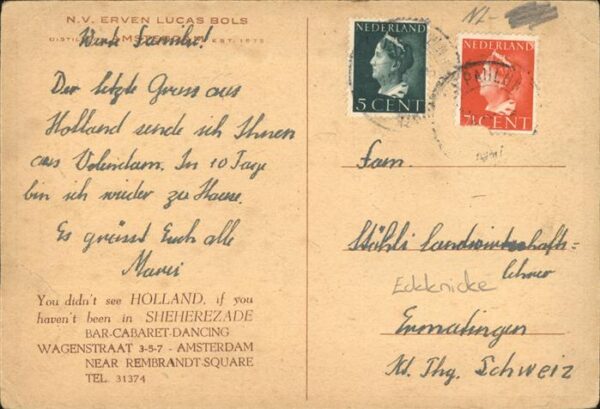 N.V. ERVEN LUCAS BOLS
AMSTERDAM EST. 1575
Werte Familie!
Der letzte Gruss aus
Holland sende ich Ihnen
aus Volendam. In 10 Tage
bin ich wieder zu Hause.
Es grüsst Euch alle
You didn't see HOLLAND, if you
haven't been in SHEHEREZADE
BAR-CABARET-DANCING
WAGENSTRAAT 3-5-7 - AMSTERDAM
NEAR REMBRANDT-SQUARE
TEL. 31374
NL-
NEDERLAND
5 CENT
NEDERLAND
7½ CENT
Fam.
Stähli landwirtschafts=
lehrer
Eckknicke
Ermatingen
Kt. Thg. Schweiz